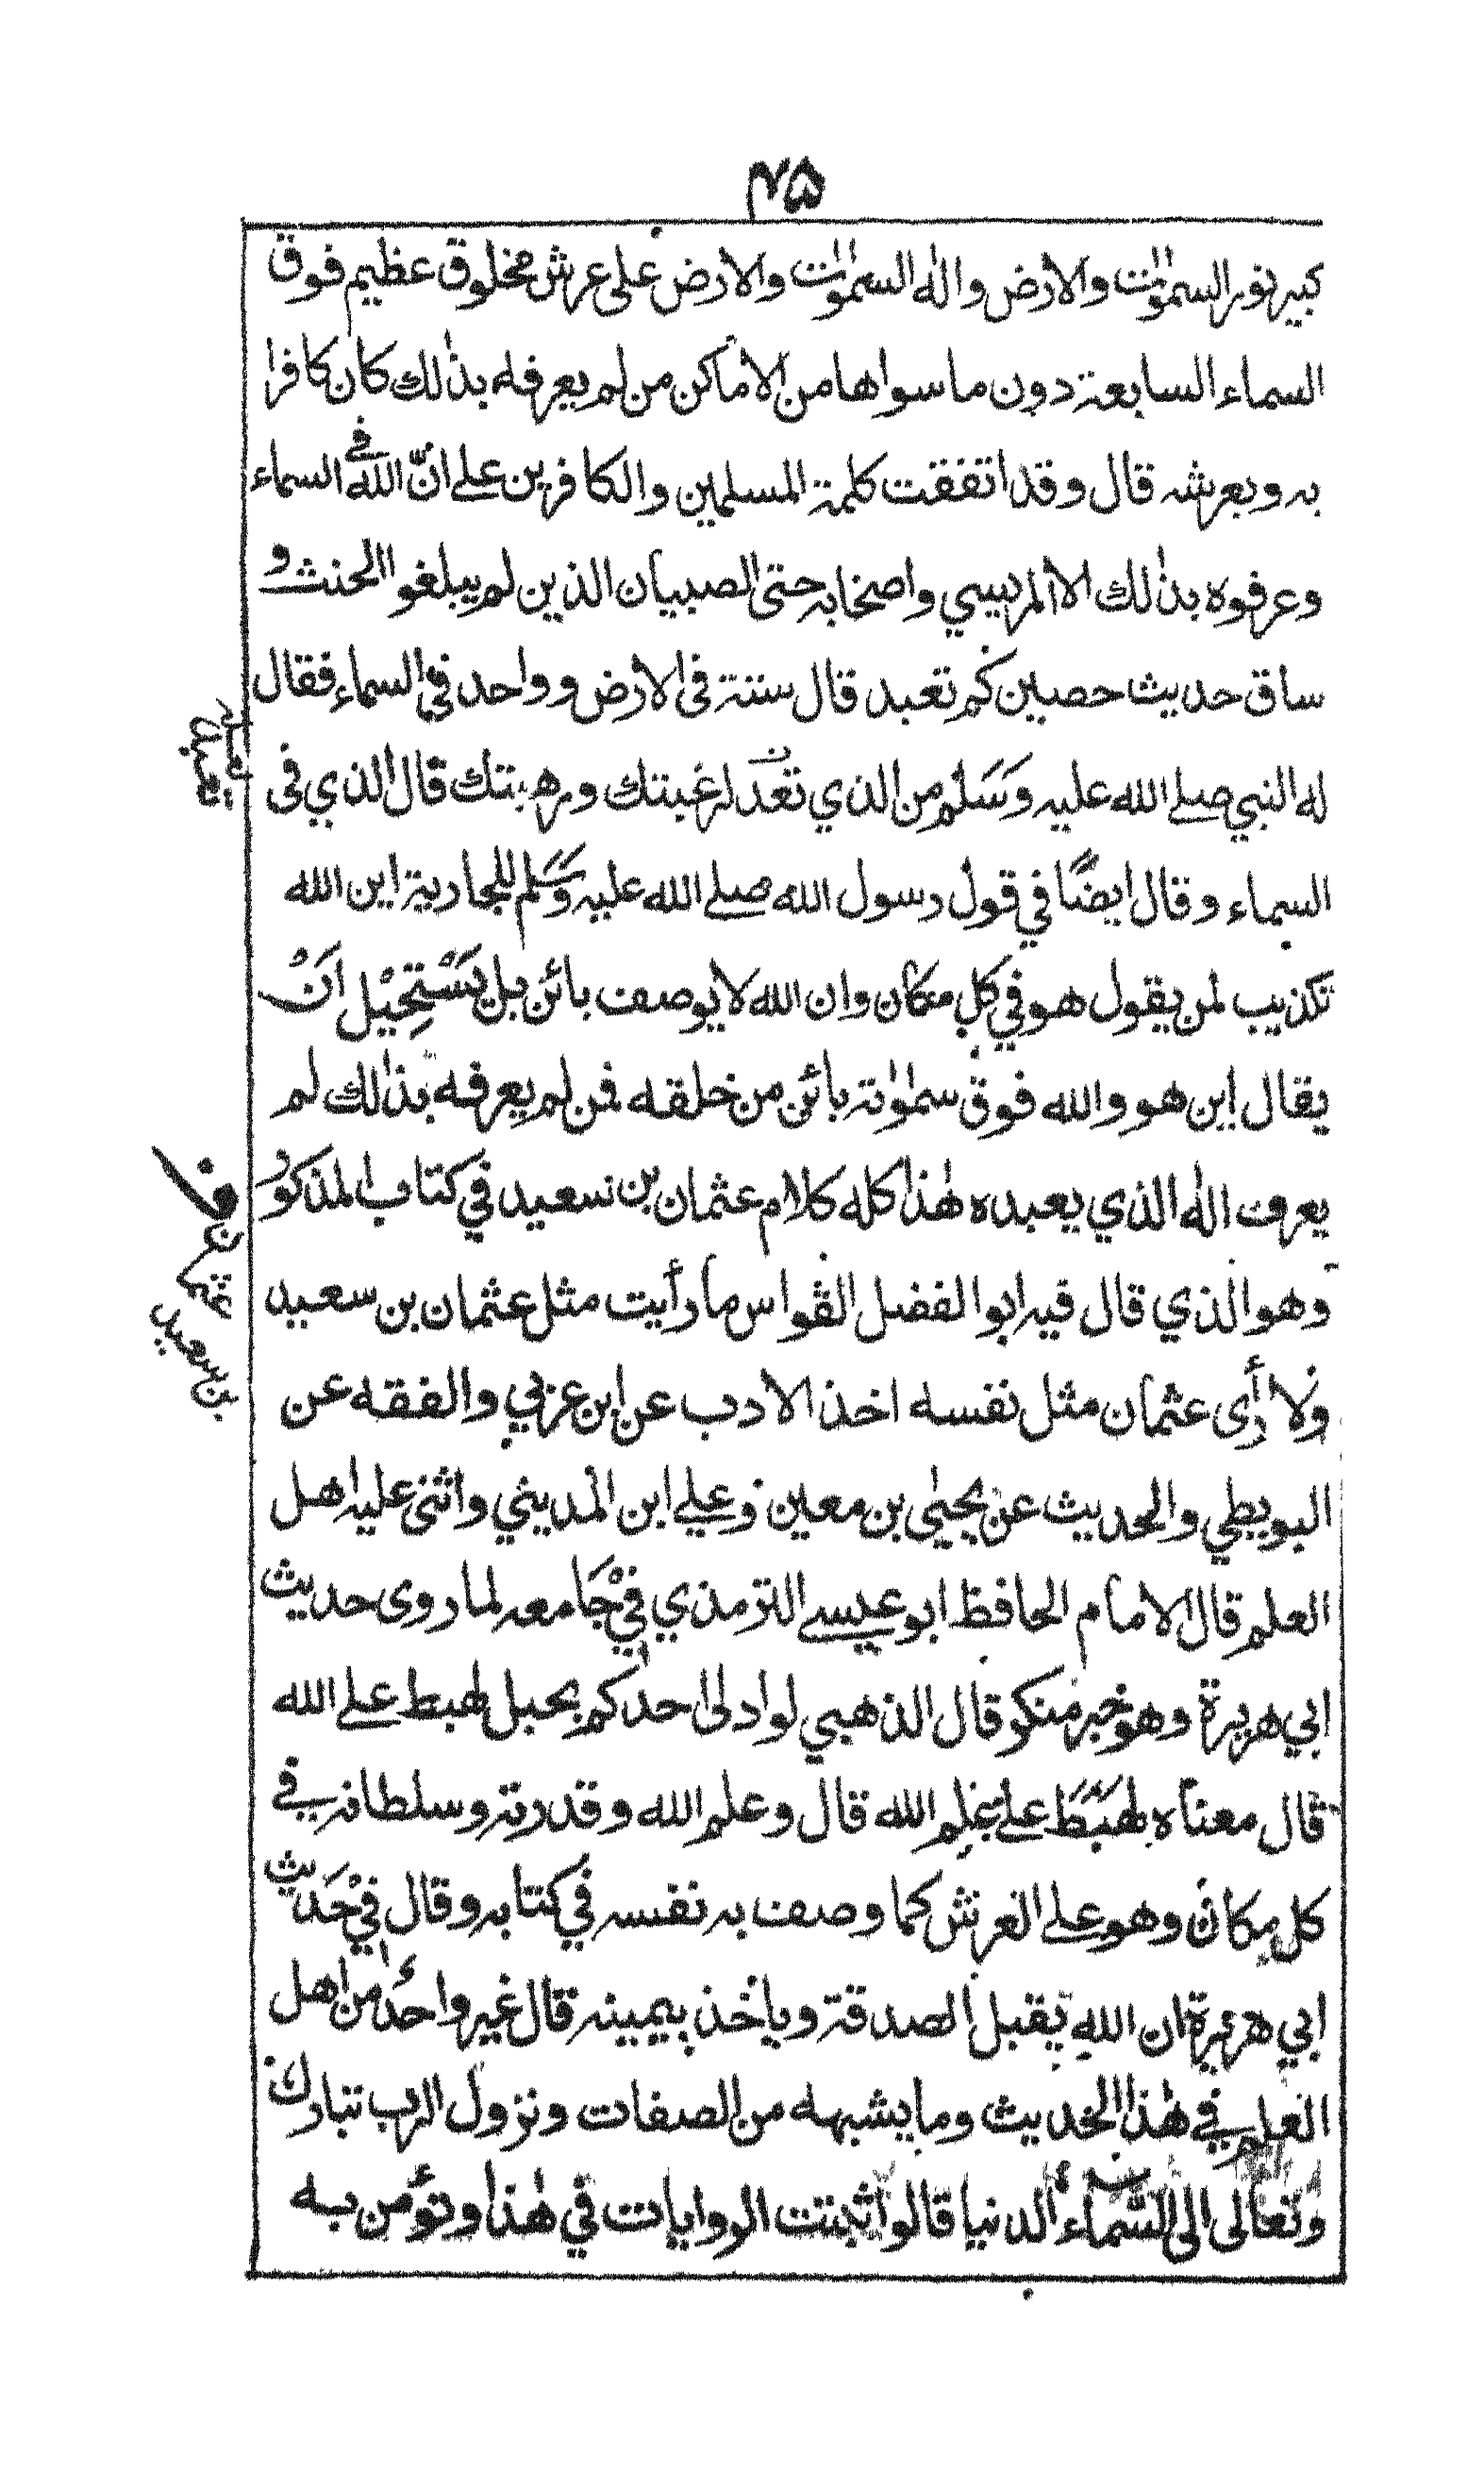 ٧٥
كبير نور السمٰوٰت والارض والٰه السمٰوٰت والارض على عرش مخلوق عظيم فوق
السماء السابعة دون ما سواها من الاماكن من لم يعرفه بذٰلك كان كافرا
به وبعرشه قال وقد اتفقت كلمة المسلمين والكافرين علے انّ الله في السماء
وعرفوه بذٰلك الا المريسي واصحابه حتى الصبيان الذين لم يبلغوا الحنث و
ساق حديث حصين كم تعبد قال ستة فى الارض وواحد في السماء فقال
له النبي صلے الله عليه وَسَلم من الذي تعد لرغبتك ورهبتك قال الذي فى
السماء وقال ايضًا في قول رسول الله صلے الله عليه وَسَلم للجارية اين الله
تكذيب لمن يقول هو في كل مكان وان الله لا يوصف بائن بل يَسْتحِيْل اَنْ
يقال اين هو والله فوق سمٰوٰته بائن من خلقه فمن لم يعرفه بذٰلك لم
يعرف الٰه الذي يعبده هٰذا كله كلام عثمان بن سعيد في كتاب المذكور
وهو الذي قال فيه ابو الفضل القواس ما رأيت مثل عثمان بن سعيد
ولا رأى عثمان مثل نفسه اخذ الادب عن ابن عربي والفقه عن
البويطي والحديث عن يحيٰى بن معين وعلي ابن المديني واثنى عليه اهل
العلم قال الامام الحافظ ابو عيسے الترمذي في جَامعه لما روى حديث
ابي هريرة وهو خبر منكر قال الذهبي لو ادلى احدكم بحبل لهبط علے الله
قال معناه لهَبَطَ علے عِلم الله قال وعلم الله وقدرته وسلطانه في
كل مكان وهو علے العرش كما وصف به نفسه في كتابه وقال في حَديث
ابي هريرة ان الله يقبل الصدقة وياخذ بيمينه قال غير واحد من اهل
العلم في هٰذا الحديث وما يشبهه من الصفات ونزول الرب تبارك
وتعالى الى السّماء الدنيا قالوا ثبتت الروايات في هٰذا ونؤمن به
عثمان
بن سعيد